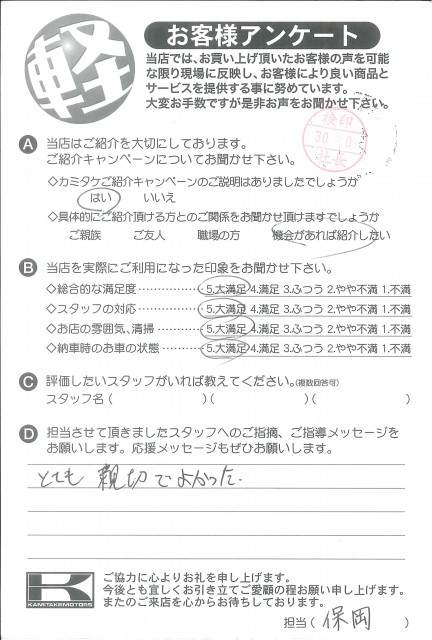 軽
お客様アンケート
当店では、お買い上げ頂いたお客様の声を可能
な限り現場に反映し、お客様により良い商品と
サービスを提供する事に努めています。
大変お手数ですが是非お声をお聞かせ下さい。
検印
30
社長
A 当店はご紹介を大切にしております。
ご紹介キャンペーンについてお聞かせ下さい。
◇カミタケご紹介キャンペーンのご説明はありましたでしょうか
はい いいえ
◇具体的にご紹介頂ける方とのご関係をお聞かせ頂けますでしょうか
ご親族 ご友人 職場の方 機会があれば紹介したい
B 当店を実際にご利用になった印象をお聞かせ下さい。
◇総合的な満足度‥‥‥‥‥‥5.大満足 4.満足 3.ふつう 2.やや不満 1.不満
◇スタッフの対応‥‥‥‥‥‥5.大満足 4.満足 3.ふつう 2.やや不満 1.不満
◇お店の雰囲気、清掃‥‥‥‥5.大満足 4.満足 3.ふつう 2.やや不満 1.不満
◇納車時のお車の状態‥‥‥‥5.大満足 4.満足 3.ふつう 2.やや不満 1.不満
C 評価したいスタッフがいれば教えてください。(複数回答可)
スタッフ名( )( )( )
D 担当させて頂きましたスタッフへのご指摘、ご指導メッセージを
お願いします。応援メッセージもぜひお願いします。
とても親切でよかった.
K
KAMITAKEMOTORS
ご協力に心よりお礼を申し上げます。
今後とも宜しくお引き立てご愛顧の程お願い申し上げます。
またのご来店を心からお待ちしております。
担当( 保岡 )